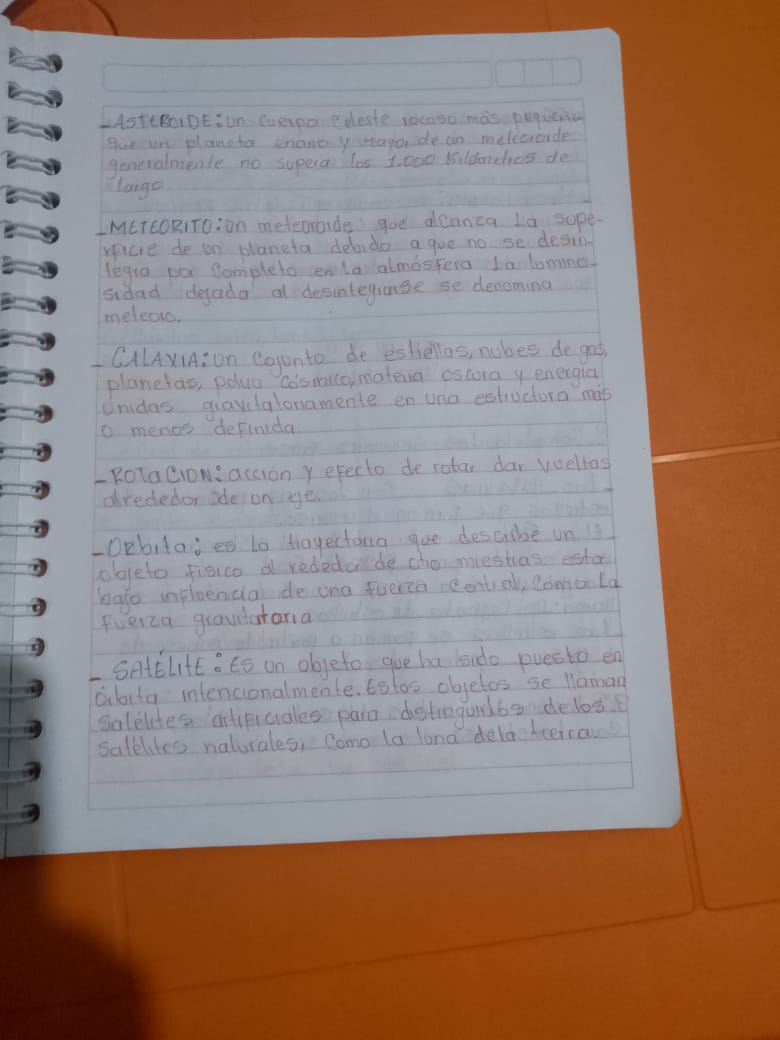 -ASTEROIDE: un cuerpo celeste rocoso más pequeño
que un planeta enano y mayor de un meteoroide
generalmente no supera los 1.000 Kilómetros de
largo.
-METEORITO: un meteoroide que alcanza La supe-
rficie de un planeta debido a que no se desin-
tegra por completo en la atmósfera La lumino-
sidad dejada al desintegrarse se denomina
meteoro.
- GALAXIA: un cojunto de estrellas, nubes de gas,
planetas, polvo cósmico, materia oscura y energía
unidas gravitatoriamente en una estructura más
o menos definida.
-ROTACION: acción y efecto de rotar dar vueltas
alrededor de un eje.
-Orbita: es La trayectoria que describe un
objeto físico al rededor de otro miestras esta
bajo influencia de una fuerza central, como La
fuerza gravitatoria
- SATÉLITE: ES un objeto que ha sido puesto en
órbita intencionalmente. Estos objetos se llaman
satélites artificiales para distinguirlos de los
satélites naturales, como la luna dela tierra.